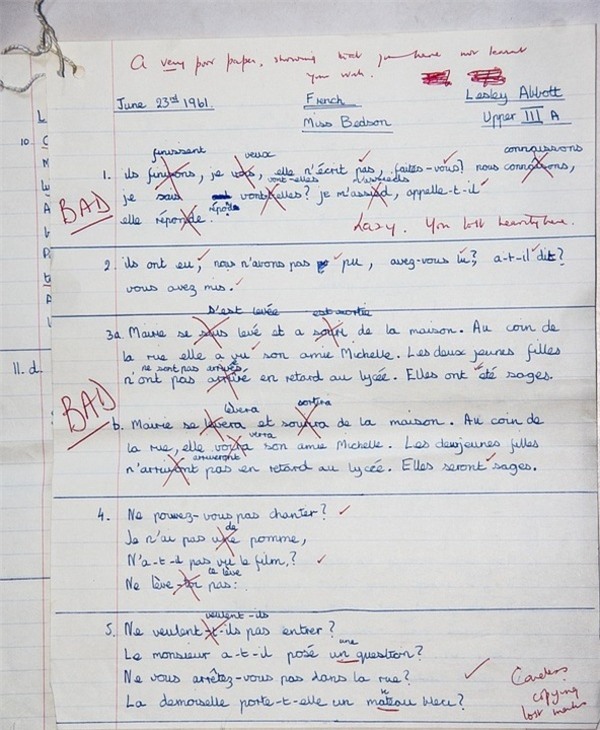 A very poor paper, showing that you have not learnt
your work.
June 23rd 1961. French Lesley Abbott
Miss Bedson Upper III A
finissent veux connaissons
1. ils finissons, je vous, elle n'écrit pas, faites-vous? nous connaissons,
vont-elles m'assieds
je sais vont-elles? je m'assied, appelle-t-il
BAD
répond
elle réponde. Lazy. You lost heavily here.
2. ils ont eu, nous n'avons pas pu, avez-vous lu?, a-t-il dit?
vous avez mis.
s'est levée est sortie
3a Marie se levé et a de la maison. Au coin de
la rue elle a vu son amie Michelle. Les deux jeunes filles
ne sont pas arrivés
n'ont pas arrivé en retard au lycée. Elles ont été sages.
BAD
lèvera sortira
b. Marie se levera et de la maison. Au coin de
verra
la rue, elle son amie Michelle. Les deux jeunes filles
arriveront
pas en retard au lycée. Elles seront sages.
4. Ne pouvez-vous pas chanter?
de
Je n'ai pas une pomme,
N'a-t-il pas vu le film?
te lève
Ne lève-toi pas.
veulent-ils
5. Ne veulent-t-ils pas entrer?
une
Le monsieur a-t-il posé un question?
Ne vous arrêtez-vous pas dans la rue?
La demoiselle porte-t-elle un mateau bleu?
Careless
copying
lost marks
10
11. d.